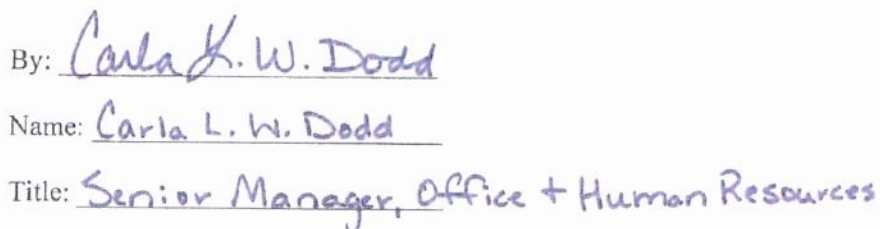 By: Carla L. W. Dodd
Name: Carla L. W. Dodd
Title: Senior Manager, Office + Human Resources